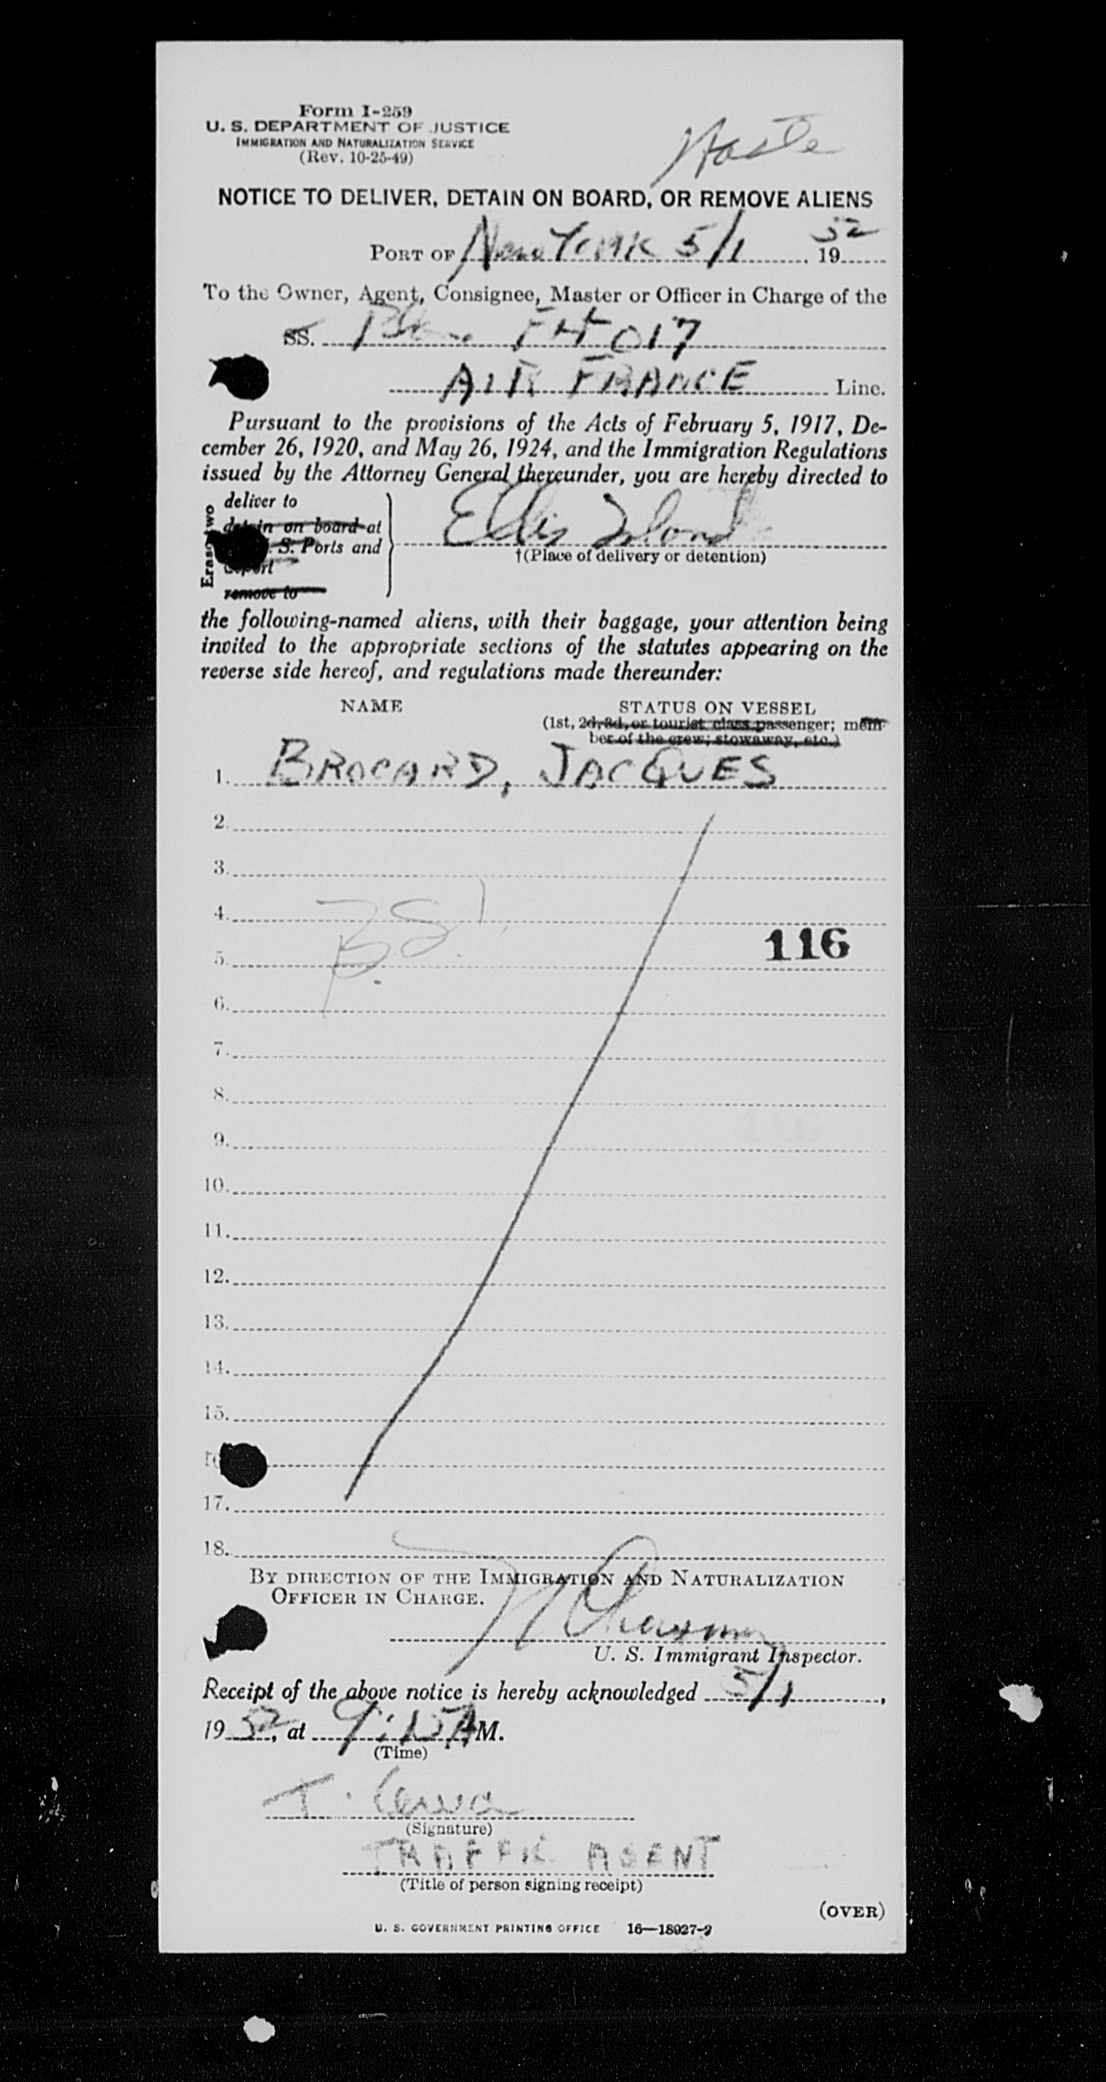 Form I-259
U. S. DEPARTMENT OF JUSTICE
IMMIGRATION AND NATURALIZATION SERVICE
(Rev. 10-25-49)
NOTICE TO DELIVER, DETAIN ON BOARD, OR REMOVE ALIENS
PORT OF New York 5/1, 19 52
To the Owner, Agent, Consignee, Master or Officer in Charge of the
SS. Plane 017
AIR FRANCE Line.
Pursuant to the provisions of the Acts of February 5, 1917, De-
cember 26, 1920, and May 26, 1924, and the Immigration Regulations
issued by the Attorney General thereunder, you are hereby directed to
deliver to
detain on board at
S. Ports and
remove to
Ellis Island
†(Place of delivery or detention)
the following-named aliens, with their baggage, your attention being
invited to the appropriate sections of the statutes appearing on the
reverse side hereof, and regulations made thereunder:
NAME STATUS ON VESSEL
(1st, 2d, 3d, or tourist class passenger; mem-
ber of the crew; stowaway, etc.)
1. BROCARD, JACQUES
2.
3.
4.
116
5.
6.
7.
8.
9.
10.
11.
12.
13.
14.
15.
17.
18.
BY DIRECTION OF THE IMMIGRATION AND NATURALIZATION
OFFICER IN CHARGE.
U. S. Immigrant Inspector.
Receipt of the above notice is hereby acknowledged 5/1,
19 52, at 9:15 A M.
(Time)
(Signature)
TRAFFIC AGENT
(Title of person signing receipt)
(OVER)
U. S. GOVERNMENT PRINTING OFFICE 16—18027-2